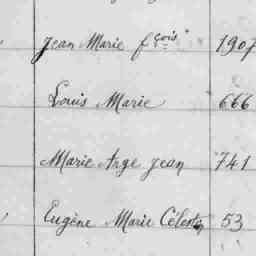 Jean Marie fçois 1907
Louis Marie 666
Marie Ange Jean 741
Eugène Marie Célestin 53